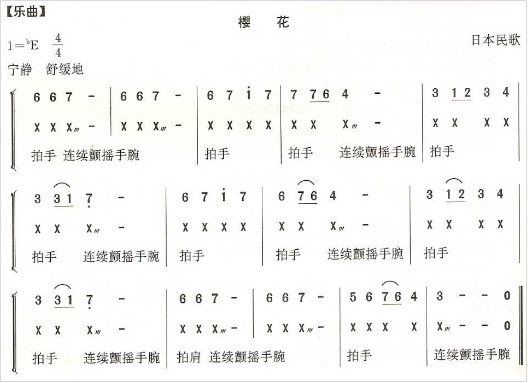 【乐曲】
樱 花
1=ᵇE 4/4 日本民歌
宁静 舒缓地
6 6 7 - | 6 6 7 - | 6 7 i 7 | 7 7 6 4 - | 3 1 2 3 4
X X X /// - | X X X /// - | X X X X | X X X /// - | X X X X
拍手 连续颤摇手腕 拍手 拍手 连续颤摇手腕 拍手
3 3 1 7 - | 6 7 i 7 | 6 7 6 4 - | 3 1 2 3 4
X X X /// - | X X X X | X X X /// - | X X X X
拍手 连续颤摇手腕 拍手 拍手 连续颤摇手腕 拍手
3 3 1 7 - | 6 6 7 - | 6 6 7 - | 5 6 7 6 4 | 3 - - 0
X X X /// - | X X X /// - | X X X /// - | X X X X | X /// - - 0
拍手 连续颤摇手腕 拍肩 连续颤摇手腕 拍手 连续颤摇手腕